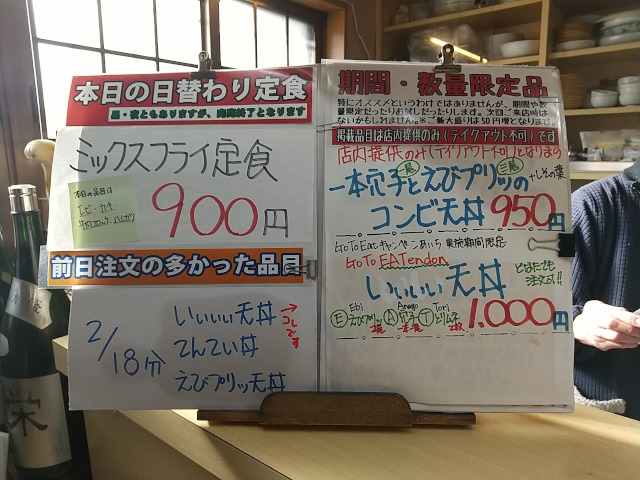 本日の日替わり定食
昼・夜ともありますが、肉肉終了となります
ミックスフライ定食
本日の品目は
エビ・カキ
900円
前日注文の多かった品目
2/18分
いぃぃぃ天丼
→コレです
てんてい丼
えびプリッ天丼
期間・数量限定品
特にオススメというわけではありませんが、期間や数
量限定だったりお試しだったりします。次回ご来店時は
ないかもしれません。※ご飯大盛りは50円増となります
掲載品目は店内提供のみ(テイクアウト不可)です
店内提供のみ(テイクアウト不可)となります
一本穴子とえびプリッの
一尾
三尾
+しその葉
コンビ天丼 950円
GoToEatキャンペーンあいち 実施期間限定
GoTo EATendon
いぃぃぃ天丼
どなたでも
注文可!!
Ebi Anago Tori
Ⓔえびプリッ Ⓐ穴子 Ⓣとりム子
2尾 一本 2枚
1.000円
栄